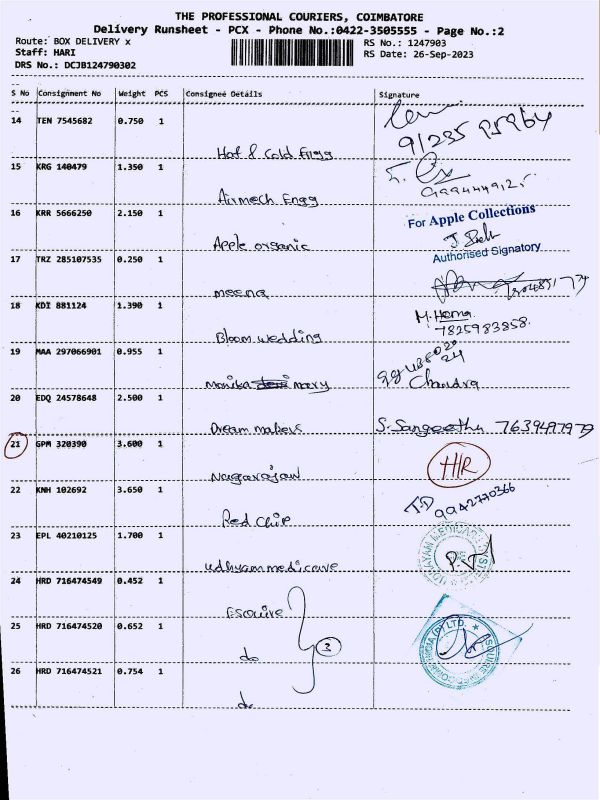 THE PROFESSIONAL COURIERS, COIMBATORE
Delivery Runsheet - PCX - Phone No.:0422-3505555 - Page No.:2
Route: BOX DELIVERY x RS No.: 1247903
Staff: HARI RS Date: 26-Sep-2023
DRS No.: DCJB124790302
S No Consignment No Weight PCS Consignee Details Signature
14 TEN 7545682 0.750 1
Hot & Cold Engg
15 KRG 140479 1.350 1
Airmech Engg
16 KRR 5666250 2.150 1 For Apple Collections
Apple organic Authorised Signatory
17 TRZ 285107535 0.250 1
meena
18 KDI 881124 1.390 1 M.Hema
Bloom wedding 7825983858.
19 MAA 297066901 0.955 1
Monika mary Chandra
20 EDQ 24578648 2.500 1
Dream makers S. Sangeetha 7639497979
21 GPM 320390 3.600 1 HR
Nagarajan
22 KNH 102692 3.650 1 T.D 9942770366
Red Chip
23 EPL 40210125 1.700 1
udhyam medicare
24 HRD 716474549 0.452 1
Esquire
25 HRD 716474520 0.652 1
do 3
26 HRD 716474521 0.754 1
do